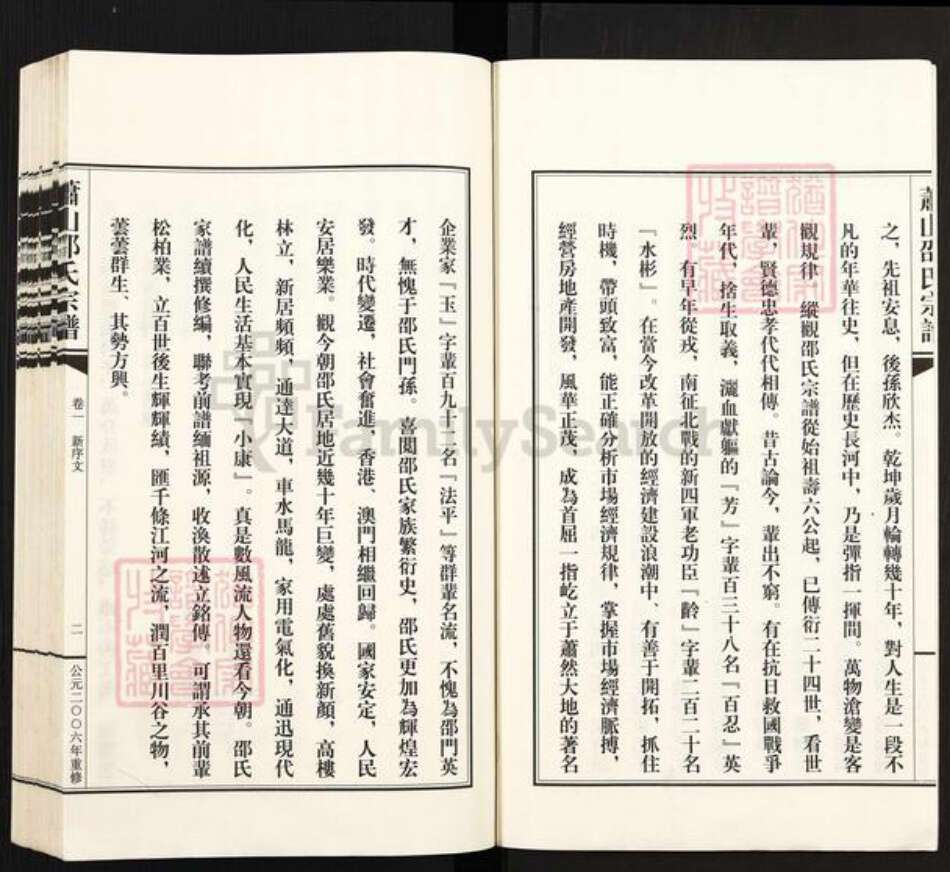 蕭山邵氏宗譜
之，先祖安息，後孫欣杰。乾坤歲月輪轉幾十年，對人生是一段不
凡的年華往史，但在歷史長河中，乃是彈指一揮間。萬物滄變是客
觀規律，縱觀邵氏宗譜從始祖壽六公起，已傳衍二十四世，看世
輩，賢德忠孝代代相傳。昔古論今，輩出不窮。有在抗日救國戰爭
年代，捨生取義，灑血獻軀的「芳」字輩百三十八名「百忍」英
烈，有早年從戎，南征北戰的新四軍老功臣「齡」字輩二百二十名
「水彬」。在當今改革開放的經濟建設浪潮中、有善于開拓，抓住
時機，帶頭致富，能正確分析市場經濟規律，掌握市場經濟脈搏，
經營房地產開發，風華正茂，成為首屈一指屹立于蕭然大地的著名
企業家「玉」字輩百九十二名「法平」等群輩名流，不愧為邵門英
才，無愧于邵氏門孫。喜閱邵氏家族繁衍史，邵氏更加為輝煌宏
發。時代變遷，社會奮進，香港、澳門相繼回歸。國家安定，人民
安居樂業。觀今朝邵氏居地近幾十年巨變，處處舊貌換新顏，高樓
林立，新居頻頻，通達大道，車水馬龍，家用電氣化，通迅現代
化，人民生活基本實現「小康」。真是數風流人物還看今朝。邵氏
家譜續撰修編，聯考前譜緬祖源，收渙散述立銘傳。可謂承其前輩
松柏業，立百世後生輝輝績，匯千條江河之流，潤百里川谷之物，
蕓蕓群生、其勢方興。
蕭山邵氏宗譜
卷一 新序文
二
公元二〇〇六年重修
FamilySearch